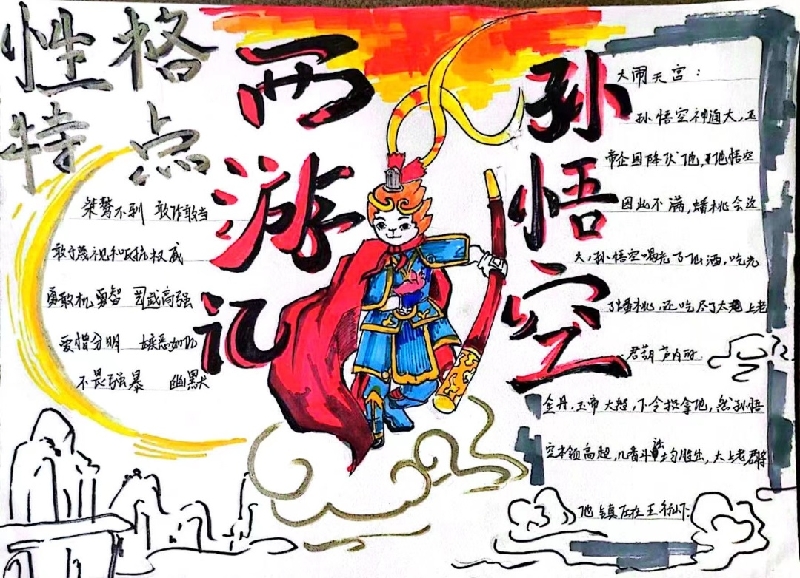 性格
特点
西游记
孙悟空
桀骜不驯 敢作敢当
敢于蔑视和反抗权威
勇敢机智 高强
爱憎分明 嫉恶如仇
不畏强暴 幽默
大闹天宫:
孙悟空神通大,玉
帝企图降伏他,悟空
因此不满,蟠桃会这
天,孙悟空喝光了仙酒,吃光
了蟠桃,还吃尽了太上老
君葫芦内的
金丹,玉帝大怒,下令捉拿他,然孙悟
空本领高超,几番斗,太上老君将
他镇压在五行山下